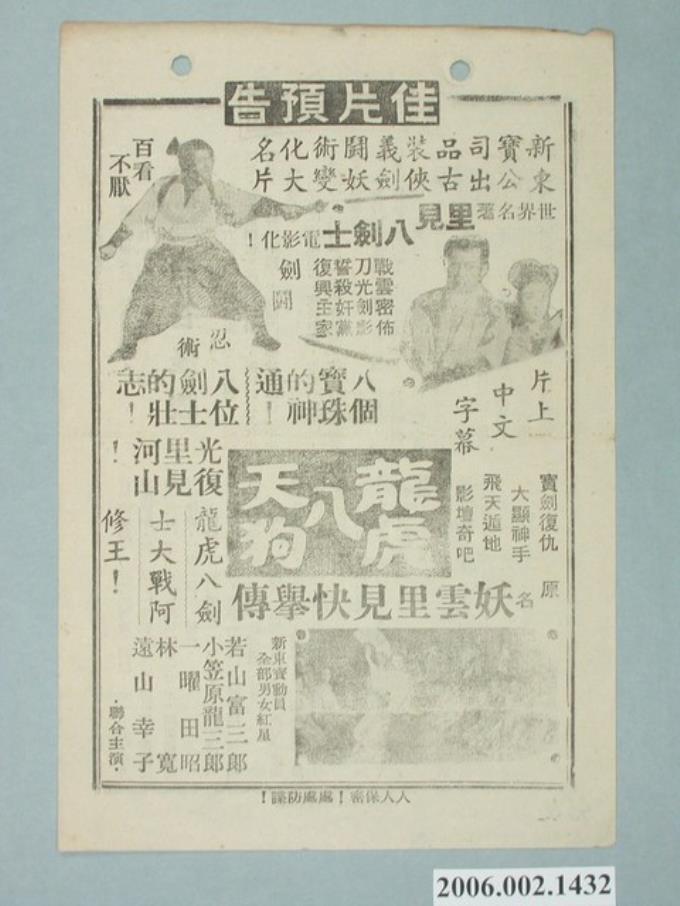 佳片預告
新東寶公司出品古裝俠義劍鬪妖術變化大名片
百看不厭
世界名著
里見八劍士電影化！
戰雲密佈
刀光劍影
誓殺奸黨
復興主家
劍鬪
忍術
片上中文字幕
八個寶珠的神通！
八位劍士的壯志！
光復里見河山！
龍虎八劍士大戰阿修王！
龍虎八天狗
寶劍復仇
大顯神手
飛天遁地
影壇奇吧
原名
妖雲里見快擧傳
新東寶動員
全部男女紅星
若山富三郎
小笠原龍三郎
一曜田昭
林寬
遠山幸子
·聯合主演·
人人保密！處處防諜！
2006.002.1432